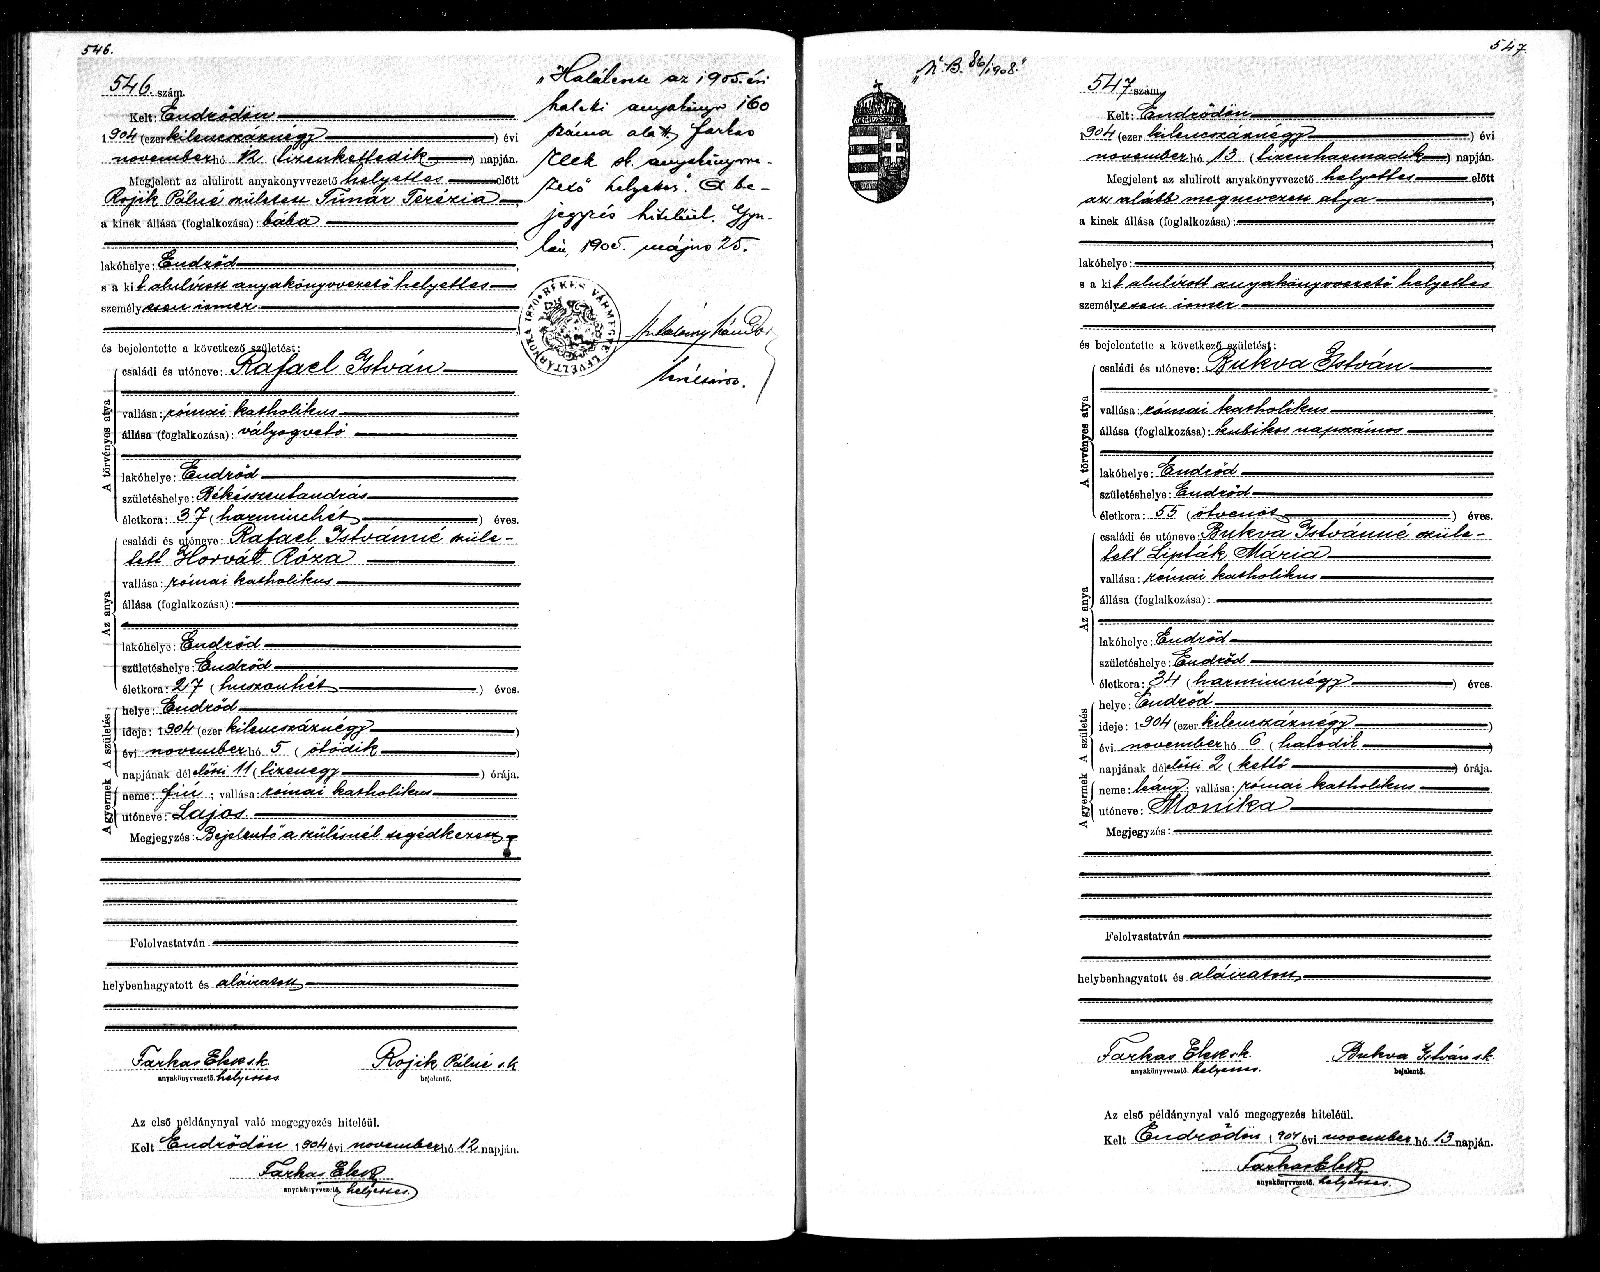 546.
546. szám.
Kelt: Endrődön
1904 (ezer kilencszáznégy) évi
november hó 12 (tizenkettedik) napján.
Megjelent az alulirott anyakönyvvezető helyettes előtt
Rojik Pálné született Timár Terézia
a kinek állása (foglalkozása): bába
lakóhelye: Endrőd
s a kit alulírott anyakönyvvezető helyettes
személyesen ismer
és bejelentette a következő születést:
A törvényes atya
családi és utóneve: Rafael István
vallása: római katholikus
állása (foglalkozása): vályogvető
lakóhelye: Endrőd
születéshelye: Békésszentandrás
életkora: 37 (harminchét) éves.
Az anya
családi és utóneve: Rafael Istvánné szüle-
tett Horvát Róza
vallása: római katholikus
állása (foglalkozása):
lakóhelye: Endrőd
születéshelye: Endrőd
életkora: 27 (huszonhét) éves.
A születés
helye: Endrőd
ideje: 1904 (ezer kilencszáznégy)
évi november hó 5 (ötödik)
napjának délelőtti 11 (tizenegy) órája.
A gyermek
neme: fiú; vallása: római katholikus
utóneve: Lajos.
Megjegyzés: Bejelentő a szülésnél segédkezett
Felolvastatván
helybenhagyatott és aláiratott
Farkas Elek sk. Rojik Pálné sk
anyakönyvvezető. helyettes. bejelentő.
Az első példánynyal való megegyezés hiteléül.
Kelt Endrődön 1904 évi november hó 12 napján.
Farkas Elek
anyakönyvvezető. helyettes.
"Halálesete az 1905. évi
halotti anyakönyv 160
száma alatt, Farkas
Elek sk. anyakönyvve-
zető helyettes". A be-
jegyzés hiteléül. Gyu-
lán, 1905. május 25.
BÉKÉS VÁRMEGYE LEVÉLTÁRNOKA 1870
levéltáros.
547
"N. B. 86/1908."
547 szám
Kelt: Endrődön
1904 (ezer kilencszáznégy) évi
november hó 13 (tizenharmadik) napján.
Megjelent az alulirott anyakönyvvezető helyettes előtt
az alább megnevezett atya
a kinek állása (foglalkozása):
lakóhelye:
s a kit alulírott anyakönyvvezető helyettes
személyesen ismer
és bejelentette a következő születést:
A törvényes atya
családi és utóneve: Bukva István
vallása: római katholikus
állása (foglalkozása): kubikos napszámos
lakóhelye: Endrőd
születéshelye: Endrőd
életkora: 55 (ötvenöt) éves.
Az anya
családi és utóneve: Bukva Istvánné szüle-
tett Lipták Mária
vallása: római katholikus
állása (foglalkozása):
lakóhelye: Endrőd
születéshelye: Endrőd
életkora: 34 (harmincnégy) éves.
A születés
helye: Endrőd
ideje: 1904 (ezer kilencszáznégy)
évi november hó 6 (hatodik)
napjának délelőtti 2 (kettő) órája.
A gyermek
neme: leány; vallása: római katholikus
utóneve: Monika
Megjegyzés:
Felolvastatván
helybenhagyatott és aláiratott
Farkas Elek sk. Bukva István sk.
anyakönyvvezető. helyettes. bejelentő.
Az első példánynyal való megegyezés hiteléül.
Kelt Endrődön 1904 évi november hó 13 napján.
Farkas Elek
anyakönyvvezető. helyettes.